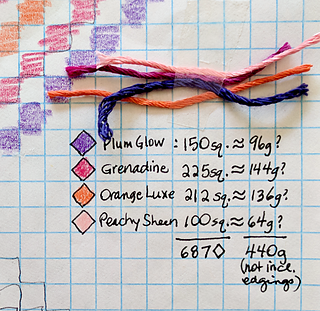 Plum Glow : 150sq. ≈ 96g?
Grenadine 225sq. ≈ 144g?
Orange Luxe 212sq. ≈ 136g?
Peachy Sheen 100sq. ≈ 64g?
687◇ 440g
(not incl.
edgings)